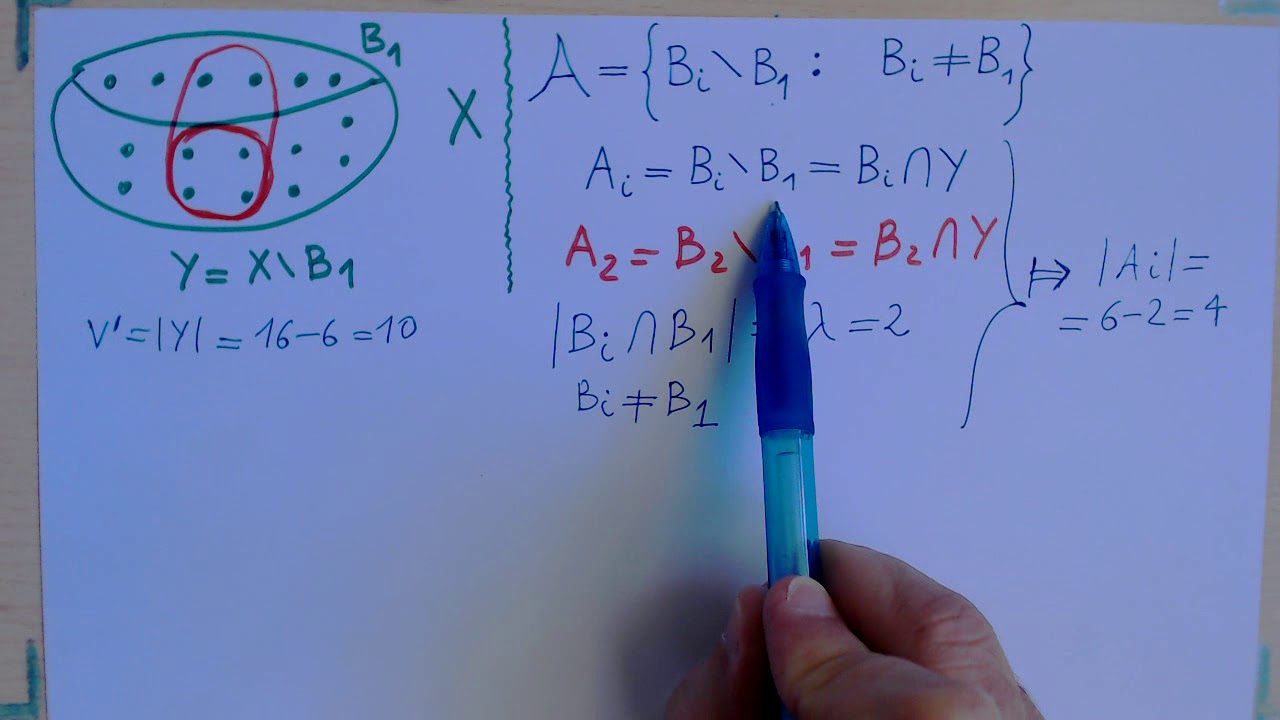 B₁
X
Y = X \ B₁
V' = |Y| = 16 - 6 = 10
A = { Bᵢ \ B₁ : Bᵢ ≠ B₁ }
Aᵢ = Bᵢ \ B₁ = Bᵢ ∩ Y
A₂ = B₂ \ 1 = B₂ ∩ Y
|Bᵢ ∩ B₁| = λ = 2
Bᵢ ≠ B₁
↦ |Aᵢ| =
= 6 - 2 = 4